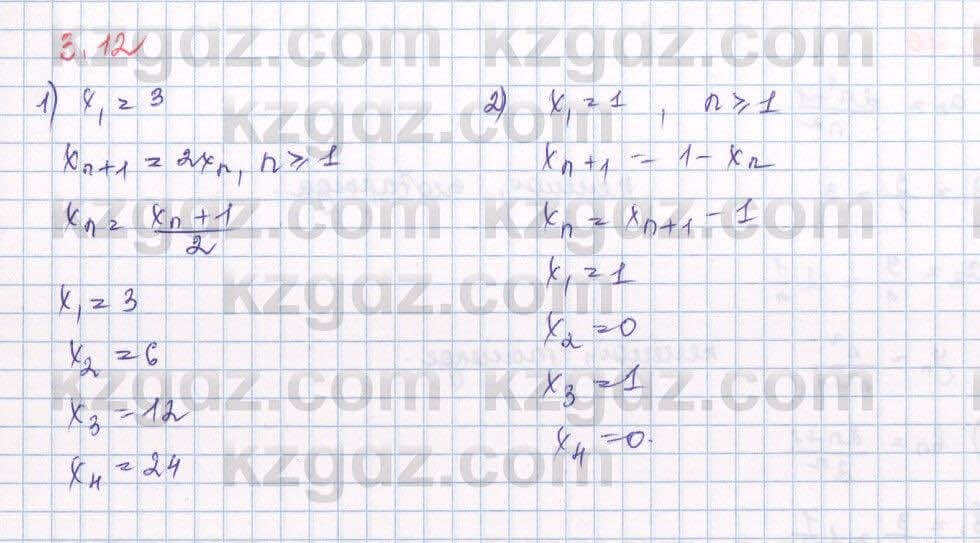 3.12
1) x₁ = 3
xₙ₊₁ = 2xₙ, n ⩾ 1
xₙ = (xₙ + 1)/2
x₁ = 3
x₂ = 6
x₃ = 12
x₄ = 24
2) x₁ = 1, n ⩾ 1
xₙ₊₁ = 1 - xₙ
xₙ = xₙ₊₁ - 1
x₁ = 1
x₂ = 0
x₃ = 1
x₄ = 0.
kzgdz.com kzgdz.com
kzgdz.com
kzgdz.com kzgdz.com
kzgdz.com
kzgdz.com kzgdz.com
kzgdz.com